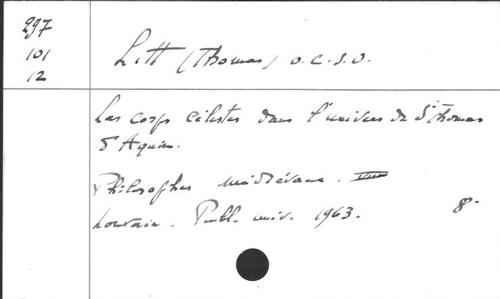 297
101
12
Litt (Thomas) O.C.S.O.
Les corps célestes dans l'univers de St Thomas
d'Aquin.
Philosophes médiévaux.
Louvain. Publ. univ. 1963. 8-